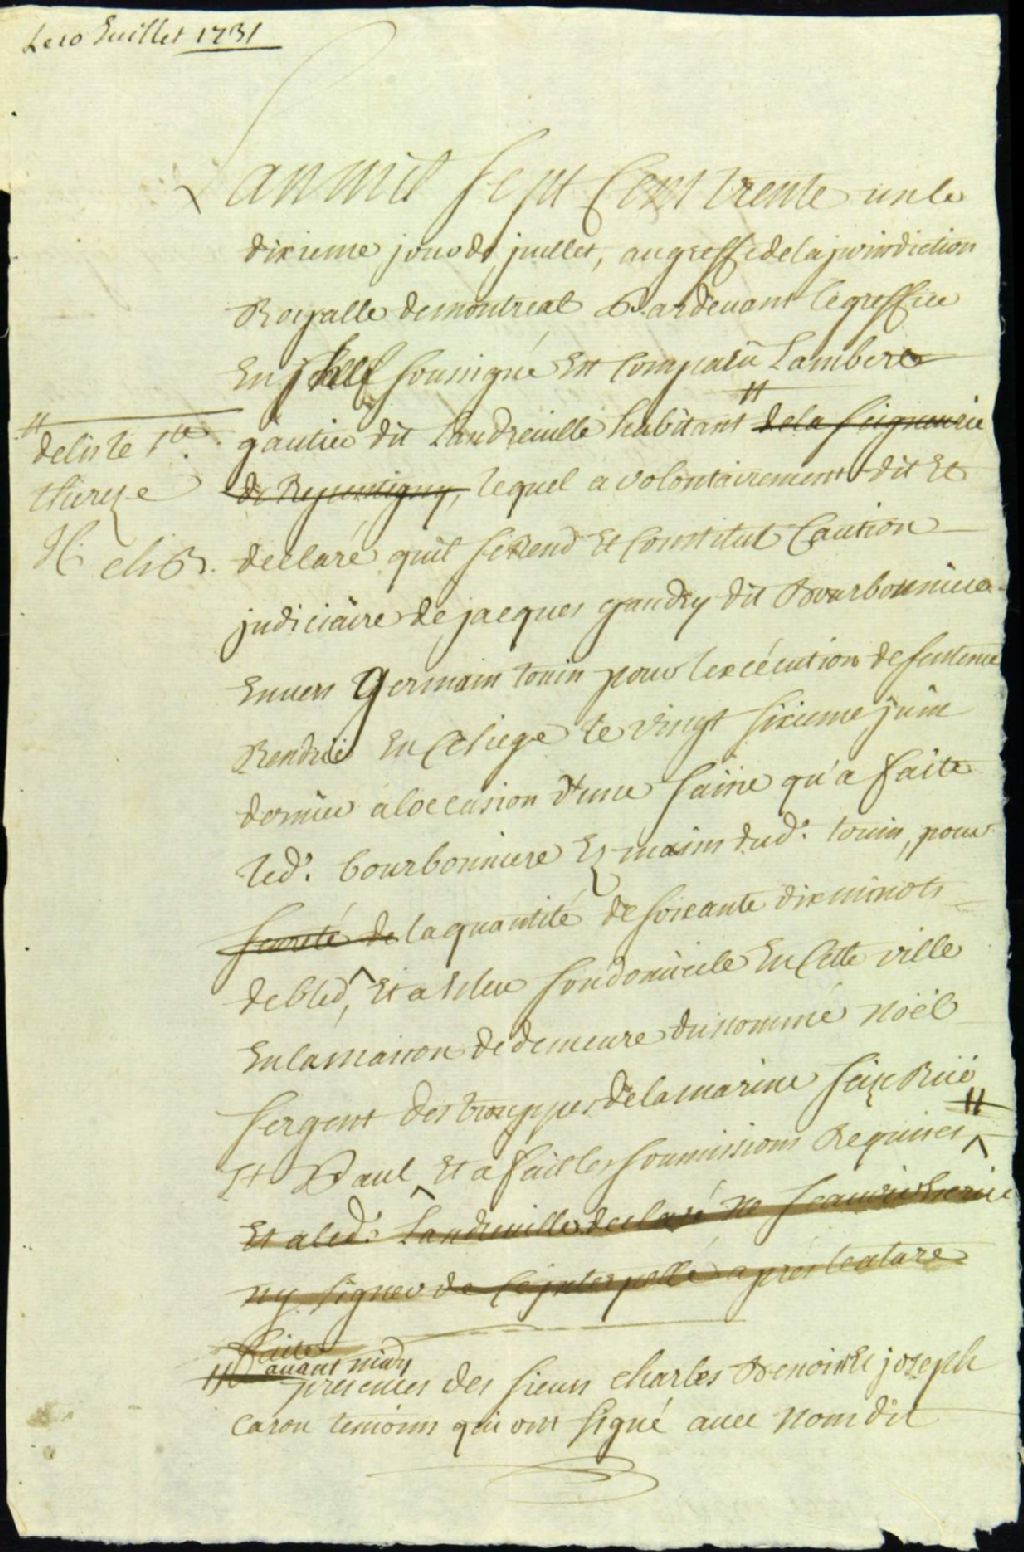 Le 10 Juillet 1731
Lan mil sept Cent trente un le
dixieme jour de juillet, au greffe de la jurisdiction
Royalle de montreal Pardevant le greffier
En chef soussigné Est Comparu Lambert
gautier dit Landreville habitant " de la seigneurie
de Repentigny, lequel a volontairement dit Et
declaré quil se Rend Et Constitut Caution
judiciaire de jacques gaudry dit Bourbonniere
Envers Germain touin pour l'exécution de sentence
Rendüe En Ce siege le vingt sixieme juin
dernier a loccasion d'une saisie qu'a faite
led. bourbonniere Es mains dud. touin, pour
seureté de la quantité de soixante dix minots
de bled, Et a Eleu son domicile En Cette ville
En la maison de demeure du nommé Noël
sergent des trouppes de la marine seize Rüe
St Paul Et a fait les soumissions Requises "
Et a led. Landreville declaré ne scavoir Ecrire
ny signer de Ce interpellé après lecture
faite
" avant midy
presences des sieurs charles Benoist Et joseph
caron temoins qui ont signé avec nom dit
" de lisle Ste.
therese